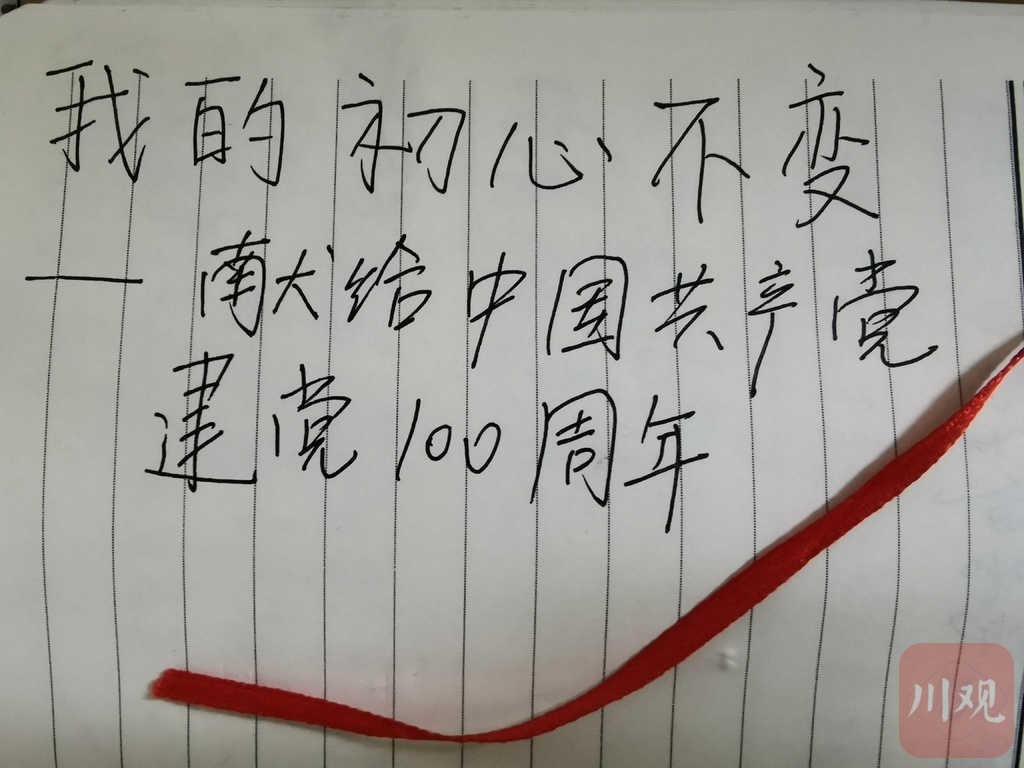 我的初心不变
—献给中国共产党
建党100周年
川观